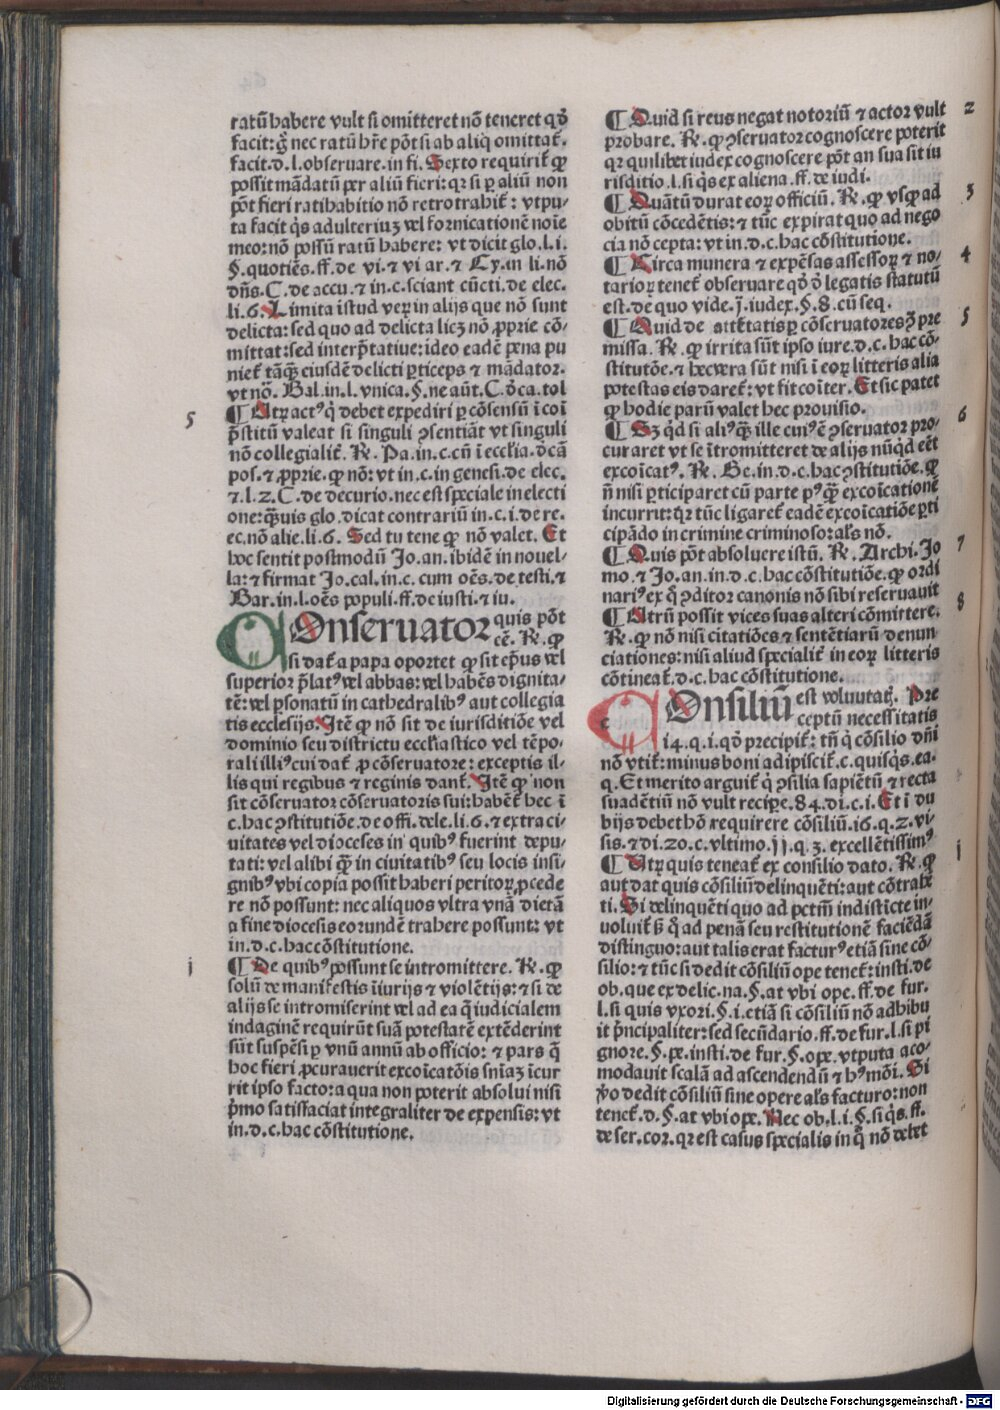 ratū habere vult si omitteret nō teneret qď
facit: g̊ nec ratū hr̄e pōt si ab aliq̊ omittat̄.
facit.d.l.obseruare.in fi. Sexto requirit̄ ꝙ
possit mādatū per aliū fieri: qꝛ si ꝑ aliū non
pōt fieri ratihabitio nō retrotrahit̄: vtpu-
ta facit q̇s adulteriuꝫ vel fornicationē noīe
meo: nō possū ratū habere: vt dicit glo.l.i.
§.quotiēs.ff.de vi.⁊ vi ar.⁊ Ex.in li.nō
dn̄s.C.de accu.⁊ in.c.sciant cūcti.de elec.
li.6. Limita istud veꝝ in alijs que nō sunt
delicta: sed quo ad delicta licꝫ nō ꝓprie cō-
mittat: sed interp̄tatiue: ideo eadē pena pu
niet̄ tāq̄ꝫ eiusdē delicti ꝑticeps ⁊ mādator.
vt nō. Bal.in.l.vnica.§.ne aūt.C.ď ca.tol
5
¶ Utꝝ actꝰ q̇ debet expediri ꝑ cōsensū ī coī
p̄stitū valeat si singuli ꝯsentiāt vt singuli
nō collegialit̄. R̄. Pa.in.c.cū ī ecclia.ď cā
pos.⁊ ꝓprie.ꝙ nō: vt in.c.in genesi.de elec.
⁊.l.2.C.de decurio.nec est speciale in electi
one: q̄ꝫuis glo.dicat contrariū in.c.i.de re.
ec.nō alie.li.6. Sed tu tene ꝙ nō valet. Et
hoc sentit postmodū Jo.an.ibidē in nouel-
la: ⁊ firmat Jo.cal.in.c.cum oēs.de testi.⁊
Bar.in.l.oēs populi.ff.de iusti.⁊ iu.
COnseruator quis pōt
eē. R̄. ꝙ
si dat̄ a papa oportet ꝙ sit ep̄us vel
superior p̄latꝰ vel abbas: vel habēs dignita-
tē: vel ꝑsonatū in cathedralibꝰ aut collegia
tis ecclesijs. Itē ꝙ nō sit de iurisditiōe vel
dominio seu districtu eccl̄iastico vel tēpo-
rali illiꝰ cui dat̄ ꝓ cōseruatore: exceptis il-
lis qui regibus ⁊ reginis dant̄. Itē ꝙ non
sit cōseruator cōseruatoris sui: habēt̄ hec ī
c.hac ꝯstitutiōe.de offi.dele.li.6.⁊ extra ci-
uitates vel dioceses in quibꝰ fuerint depu-
tati: vel alibi q̄ꝫ in ciuitatibꝰ seu locis insi-
gnibꝰ vbi copia possit haberi peritoꝝ ꝓcede
re nō possunt: nec aliquos vltra vnā dietā
a fine diocesis eorundē trahere possunt: vt
in.d.c.hac cōstitutione.
i
¶ De quibꝰ possunt se intromittere. R̄. ꝙ
solū de manifestis īiurijs ⁊ violētijs: ⁊ si de
alijs se intromiserint vel ad ea q̄ iudicialem
indaginē requirūt suā potestatē extēderint
sūt suspēsi ꝑ vnū annū ab officio: ⁊ pars q̄
hoc fieri ꝓcurauerit excoīcatōis sn̄iaꝫ īcur
rit ipso facto: a qua non poterit absolui nisi
p̄mo satisfaciat integraliter de expensis: vt
in.d.c.hac cōstitutione.
¶ Quid si reus negat notoriū ⁊ actor vult
2
probare. R̄. ꝙ ꝯseruator cognoscere poterit
qꝛ quilibet iudex cognoscere pōt an sua sit iu
risditio.l.si q̇s ex aliena.ff.de iudi.
¶ Quātū durat eoꝝ officiū. R̄. ꝙ vsqꝫ ad
3
obitū cōcedētis: ⁊ tūc expirat quo ad nego
cia nō cepta: vt in.d.c.hac cōstitutione.
¶ Circa munera ⁊ expēsas assessoꝝ ⁊ no-
4
tarioꝝ tenet̄ obseruare qď ď legatis statutū
est.de quo vide.j.iudex.§.8.cū seq.
¶ Quid de attētatis ꝑ cōseruatores ꝯ pre
5
missa. R̄. ꝙ irrita sūt ipso iure.d.c.hac cō-
stitutōe.⁊ hec vera sūt nisi ī eoꝝ litteris alia
potestas eis daret̄: vt fit coīter. Et sic patet
ꝙ hodie parū valet hec prouisio.
¶ Sꝫ qd̄ si aliꝰ q̄ꝫ ille cuiꝰ ē ꝯseruator pro-
6
curaret vt se ītromitteret de alijs nūqd̄ eēt
excoīcatꝰ. R̄. Ge.in.d.c.hac ꝯstitutiōe.ꝙ
n̄ nisi ꝑticiparet cū parte pꝰ q̄ꝫ excoīcationē
incurrit: qꝛ tūc ligaret̄ eadē excoīcatiōe ꝑti
cipādo in crimine criminoso: als̄ nō.
¶ Quis pōt absoluere istū. R̄. Archi. Jo
7
mo.⁊ Jo.an.in.d.c.hac cōstitutiōe.ꝙ ordi
nariꝰ ex q̊ ꝯditor canonis nō sibi reseruauit
¶ Utrū possit vices suas alteri cōmittere.
8
R̄. ꝙ nō nisi citatiōes ⁊ sentētiarū denun
ciationes: nisi aliud specialit̄ in eoꝝ litteris
cōtineat̄.d.c.hac cōstitutione.
COnsiliū est voluutatꝭ. Pre
ceptū necessitatis
i4.q.i.qď precipit̄: tn̄ q̇ cōsilio dn̄i
nō vtit̄: minus boni adipiscit̄.c.quisq̇s.ea.
q. Et merito arguit̄ q̇ ꝯsilia sapiētū ⁊ recta
suadētiū nō vult recipe.84.di.c.i. Et ī du
bijs debet hō requirere cōsiliū.i6.q.2.vi-
sis.⁊ di.20.c.vltimo.jj.q.3.excellētissimꝰ
¶ Utꝝ quis teneat̄ ex consilio dato. R̄. ꝙ
i
aut dat quis cōsiliū delinquēti: aut cōtrahē
ti. Si delinquēti quo ad pctm̄ indistīcte in-
uoluit̄ sꝫ q̊ ad penā seu restitutionē faciēdā
distinguo: aut talis erat facturꝰ etiā sine cō-
silio: ⁊ tūc si dedit cōsiliū ope tenet̄: insti.de
ob.que ex delic.na.§.at vbi ope.ff.de fur.
l.si quis vxori.§.i.etiā si cōsiliū nō adhibu
it p̄ncipaliter: sed secūdario.ff.de fur.l.si pi
gnore.§.pe.insti.de fur.§.ope.vtputa aco-
modauit scalā ad ascendendū ⁊ hꝰmōi. Si
ꝟo dedit cōsiliū sine opere als̄ facturo: non
tenet̄.d.§.at vbi ope. Nec ob.l.i.§.si q̇s.ff.
de ser.cor.qꝛ est casus specialis in q̊ nō debet
Digitalisierung gefördert durch die Deutsche Forschungsgemeinschaft - DFG